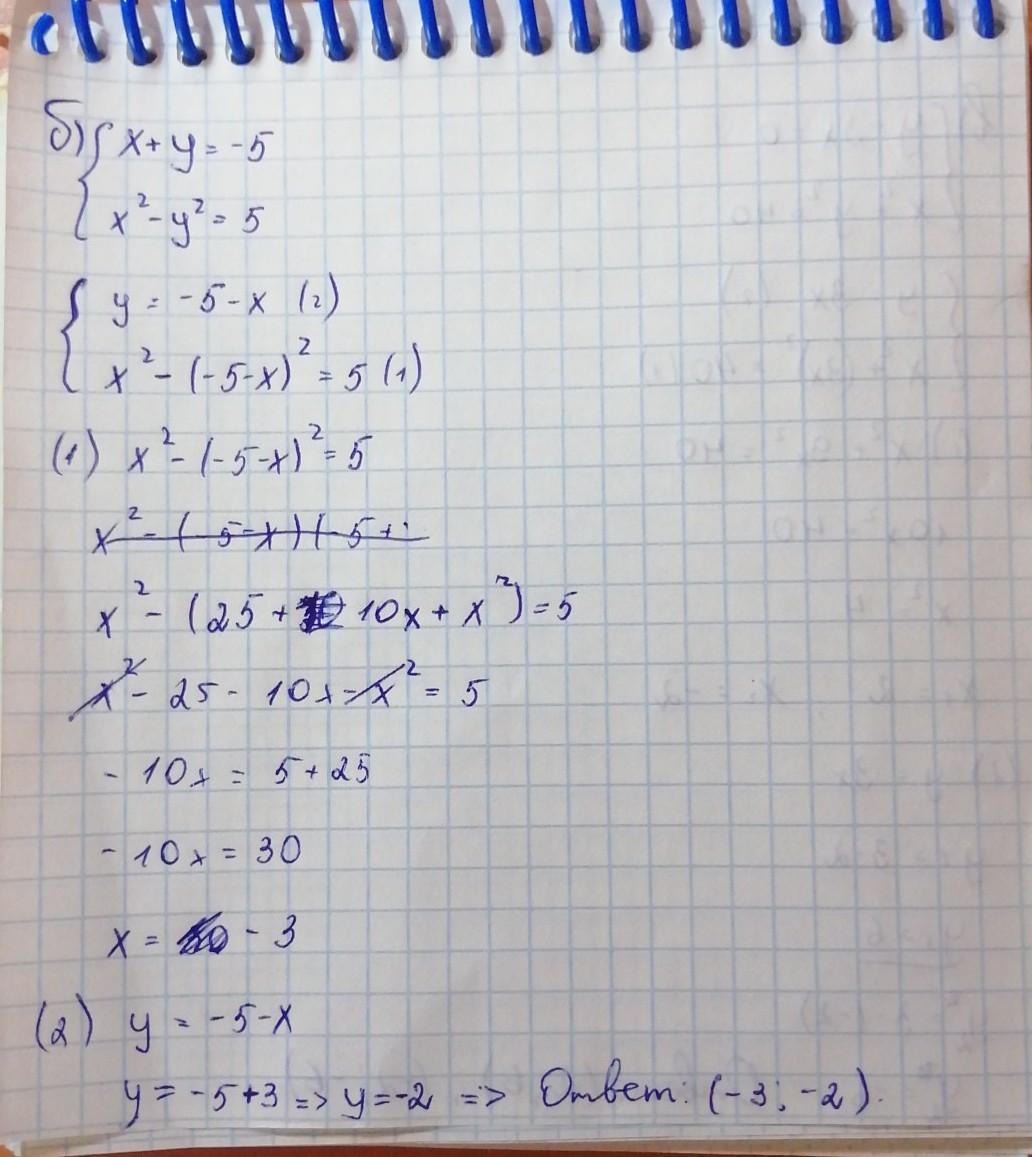 б) { x + y = -5
x² - y² = 5
{ y = -5 - x (2)
x² - (-5-x)² = 5 (1)
(1) x² - (-5-x)² = 5
x² - (-5-x)(-5+
x² - (25 + 10x + x²) = 5
x² - 25 - 10x - x² = 5
- 10x = 5 + 25
- 10x = 30
x = - 3
(2) y = -5-x
y = -5+3 => y=-2 => Ответ: (-3; -2).